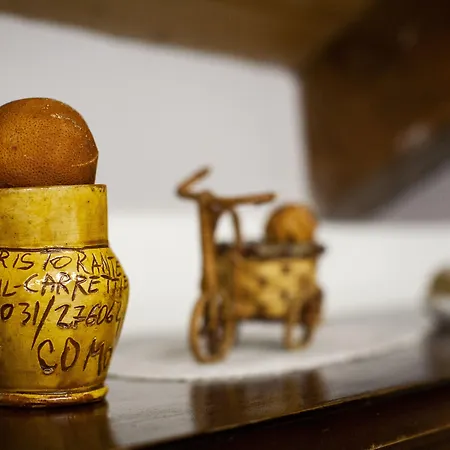 RISTORANTE
IL CARRETT
031/27606
COMO